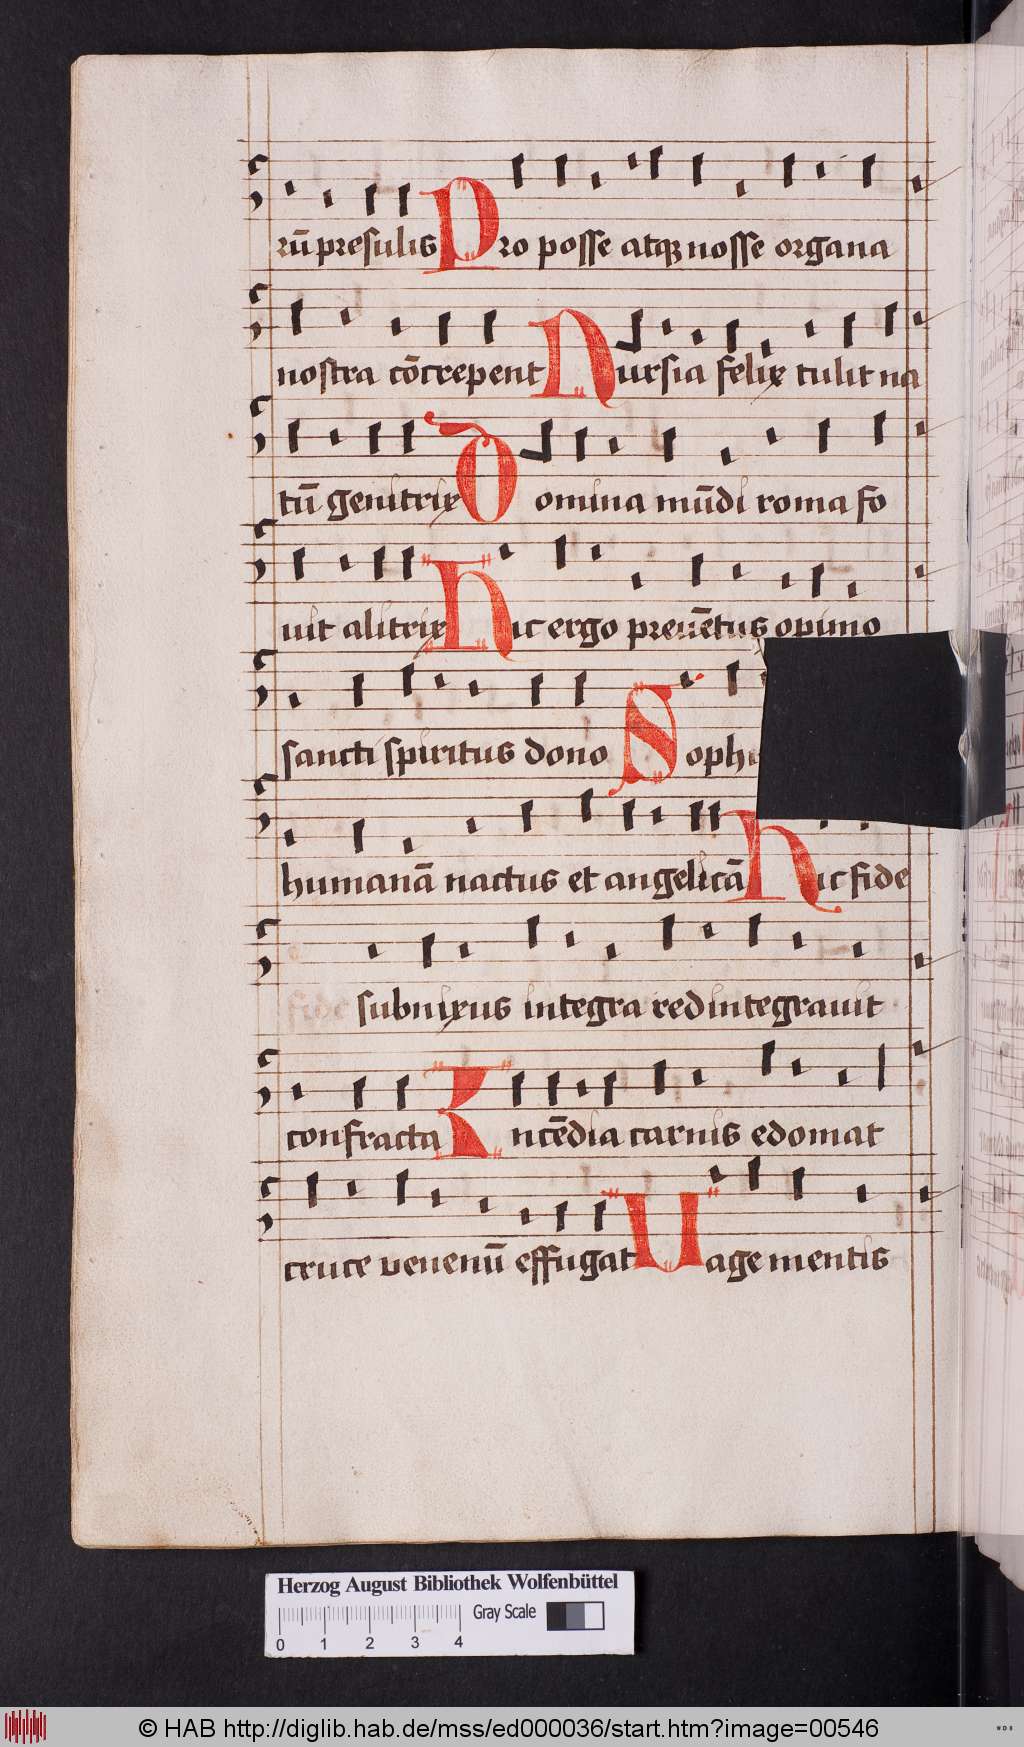 rū presulis Pro posse atqꝫ nosse organa
nostra cōcrepent Nursia felix tulit na
tū genitrix Domina mūdi roma fo
uit alitrix Hic ergo preuētus opimo
sancti spiritus dono Soph
humanā nactus et angelicā Hic fide
fide subnixus integra redintegrauit
confracta Incēdia carnis edomat
cruce venenū effugat Uage mentis
Herzog August Bibliothek Wolfenbüttel
Gray Scale
0 1 2 3 4
© HAB http://diglib.hab.de/mss/ed000036/start.htm?image=00546